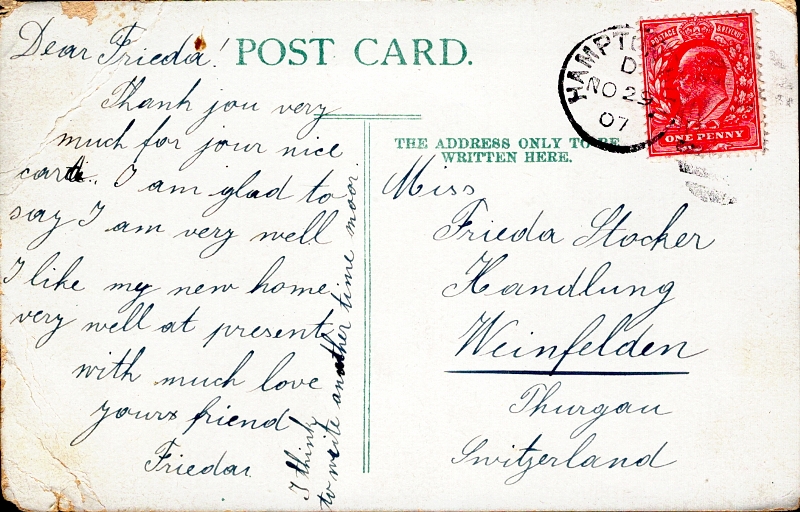 Dear Frieda!
POST CARD.
Thank jou very
much for jour nice
card. I am glad to
say I am very well
I like my new home.
very well at present
with much love
yours friend
Frieda.
I think
to write another time moor.
THE ADDRESS ONLY TO BE
WRITTEN HERE.
Miss
Frieda Stocker
Handlung
Weinfelden
Thurgau
Switzerland
HAMPTO
D
NO 29
07
POSTAGE & REVENUE
ONE PENNY